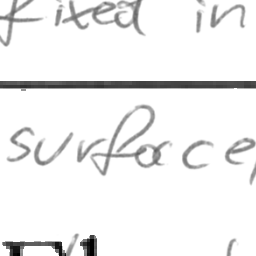 fixed in
surface,